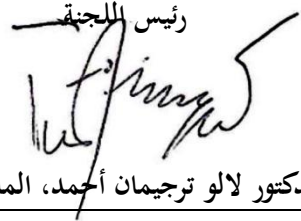 رئيس اللجنة
دكتور لالو ترجيمان أحمد، الم